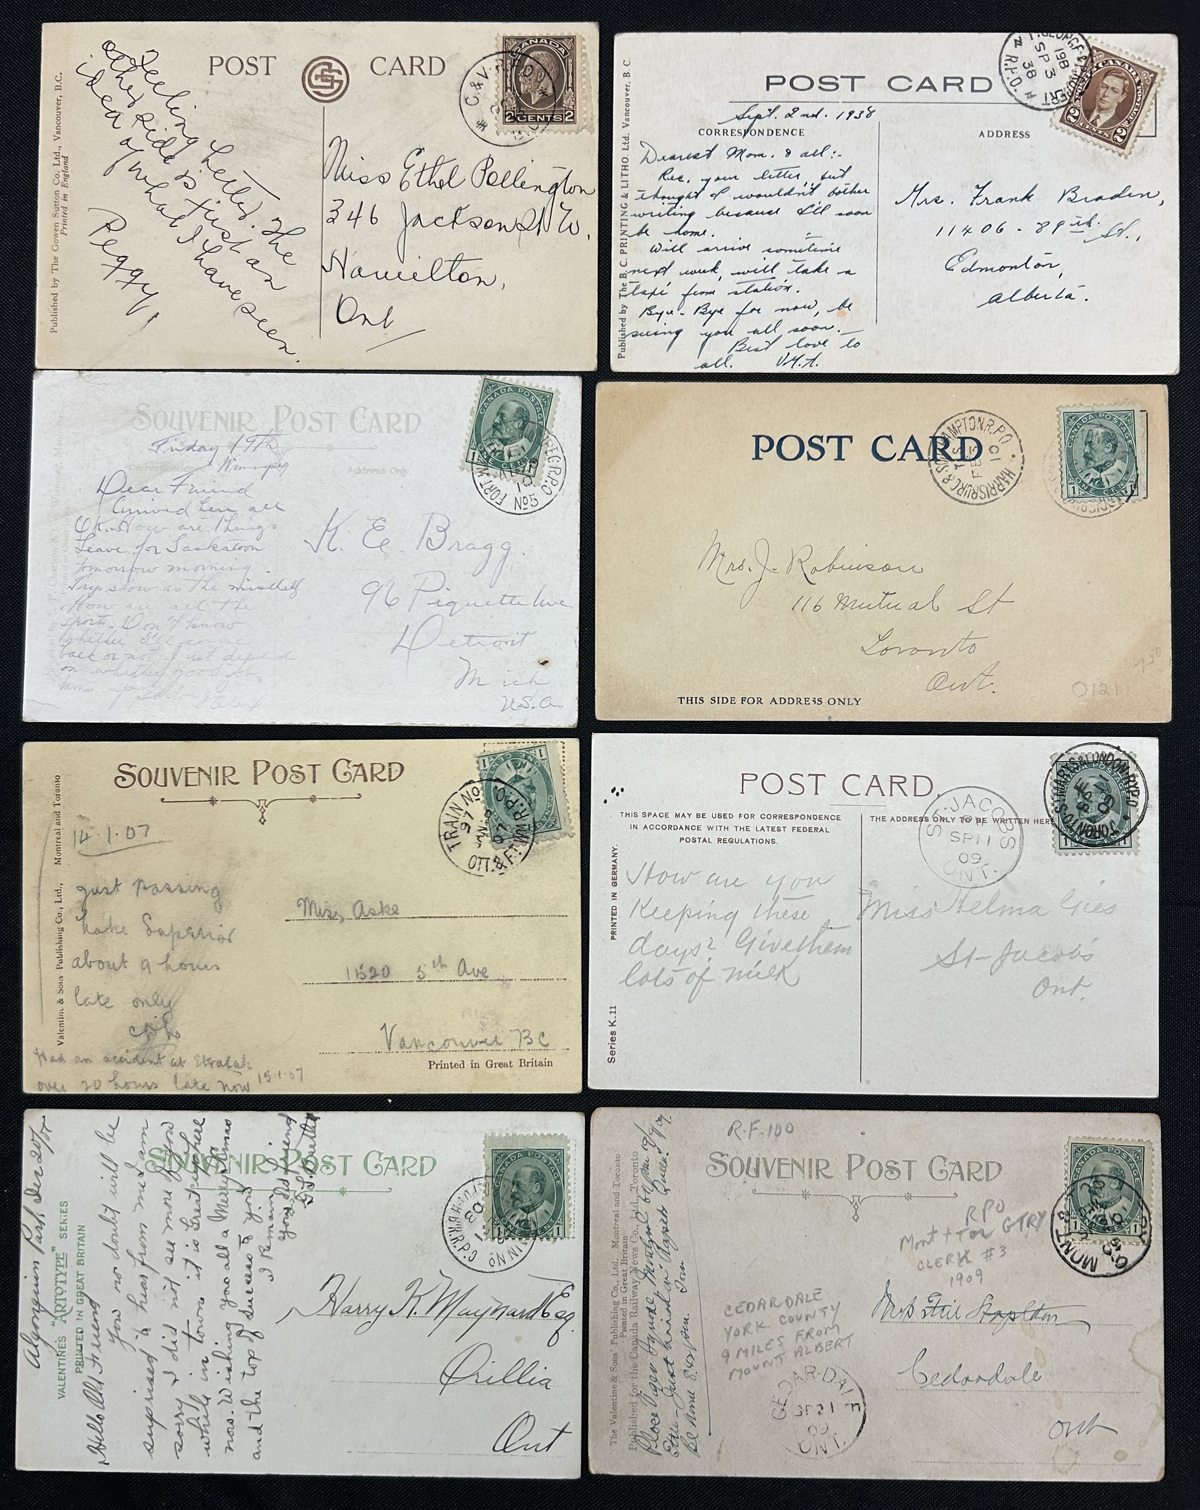 POST CARD
CANADA
2 CENTS 2
C. & V. R.P.O.
Feeling better. The
other side is just an
idea of what I have seen.
Peggy.
Miss Ethel Pellington
346 Jackson St W.
Hamilton,
Ont
Published by The Gowen Sutton Co. Ltd., Vancouver, B.C.
Printed in England
POST CARD
Sept. 2nd. 1938
CORRESPONDENCE
ADDRESS
Dearest Mom. & all:-
Rec. your letter, but
thought I wouldn't bother
writing because I'll soon
be home.
Will arrive sometime
next week, will take a
taxi from station.
Bye-Bye for now, be
seeing you all soon.
Best love to
all.
Mrs. Frank Braden,
11406 - 89th St.,
Edmonton,
Alberta.
Published by The B. C. PRINTING & LITHO. Ltd. Vancouver, B. C.
198
SP 3
38
R.P.O.
SOUVENIR POST CARD
Friday 19th
Winnipeg
Address Only
Dear Friend
Arrived here all
O.K. How are things
Leave for Saskatoon
tomorrow morning.
How are all the
sports. Don't know
whether I'll come
back or not. Just depend
on whether good
K. E. Bragg.
96 Piquette Ave
Detroit
Mich
U.S.A.
CANADA POSTAGE
R.P.O. No5
POST CARD
HARRISBURG & S'HAMPTON R.P.O.
FEB
01
Mrs. J. Robinson
116 Mutual St
Toronto
Ont.
0121
THIS SIDE FOR ADDRESS ONLY
SOUVENIR POST CARD
14.1.07
just passing
Lake Superior
about 9 hours
late only
Had an accident at
over 20 hours late now 15.1.07
Miss, Aske
11520 5th Ave
Vancouver BC
Printed in Great Britain
Valentine & Sons Publishing Co., Ltd., Montreal and Toronto
TRAIN No 97
OTT. & FT. W. R.P.O.
POST CARD.
THIS SPACE MAY BE USED FOR CORRESPONDENCE
IN ACCORDANCE WITH THE LATEST FEDERAL
POSTAL REGULATIONS.
THE ADDRESS ONLY TO BE WRITTEN HERE
ST. JACOBS
SP 11
09
ONT.
TORONTO ST MARYS & LONDON RY.P.O.
How are you
keeping these
days? Give them
lots of milk
Miss Velma Gies
St-Jacobs
Ont.
PRINTED IN GERMANY.
Series K.11
SOUVENIR POST CARD
VALENTINES "ARTOTYPE" SERIES
PRINTED IN GREAT BRITAIN
Algonquin Park, Dec 20/07
Hello Old Friend
You no doubt will be
suprised to hear from me I am
sorry I did not see more of you
while in town it is Great up here
now. Wishing you all a Merry Xmas
and the top of success to you
I Remain
your old friend
Harry K. Maynard Esq.
Orillia
Ont
R.F.100
SOUVENIR POST CARD
RPO
Mont + Tor GTRY
CLERK #3
1909
CEDARDALE
YORK COUNTY
9 MILES FROM
MOUNT ALBERT
Cedardale
Ont
CEDAR-DALE
SP 21
09
ONT.
The Valentine & Sons' Publishing Co., Ltd. Montreal and Toronto
Printed in Great Britain
Published for the Canada Railway News Co., Ltd. Toronto